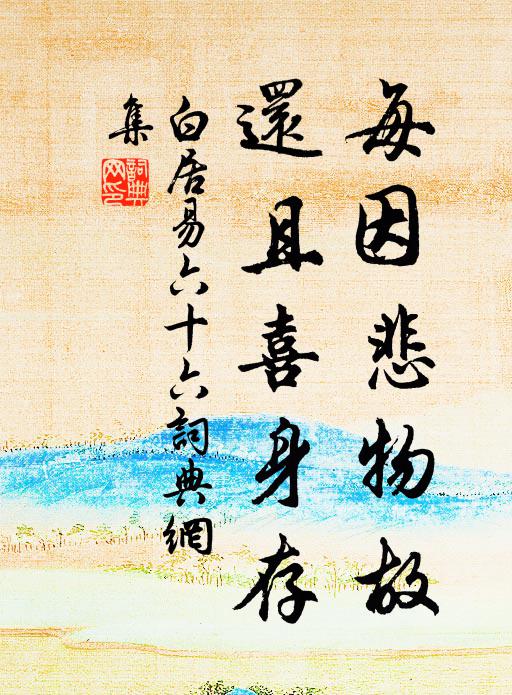 每因悲物故
還且喜身存
白居易六十六詞典網
集
詞典网印